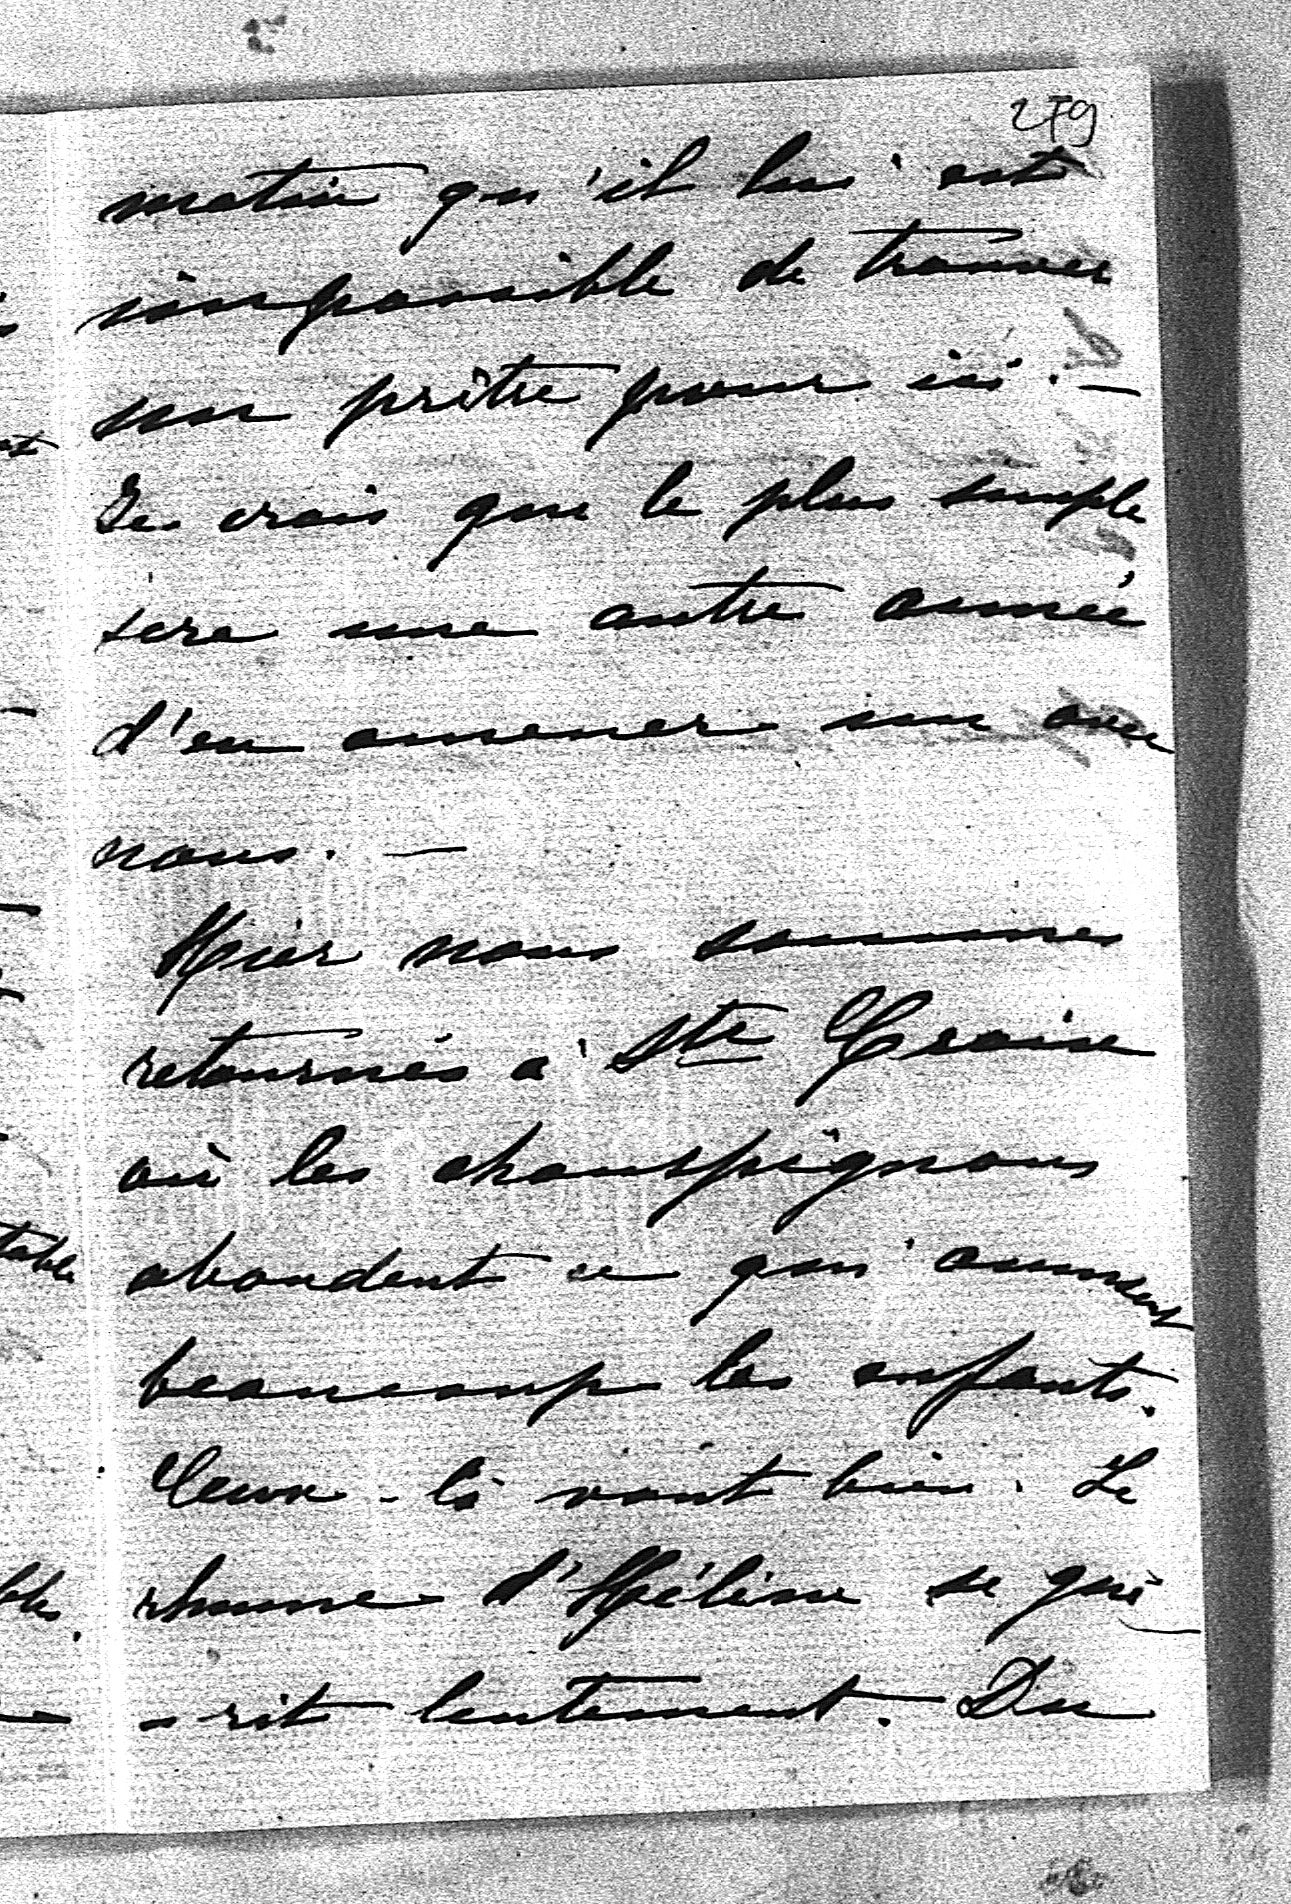 279
matin qu'il lui est
impossible de trouver
un prêtre pour ici. —
Je crois que le plus simple
sera une autre année
d'en amener un avec
nous. —
Hier nous sommes
retournés à Ste Croix
où les champignons
abondent ce qui amusent
beaucoup les enfants.
Ceux-là vont bien. Le
rhume d'Hélène se gué-
-rit lentement. Du